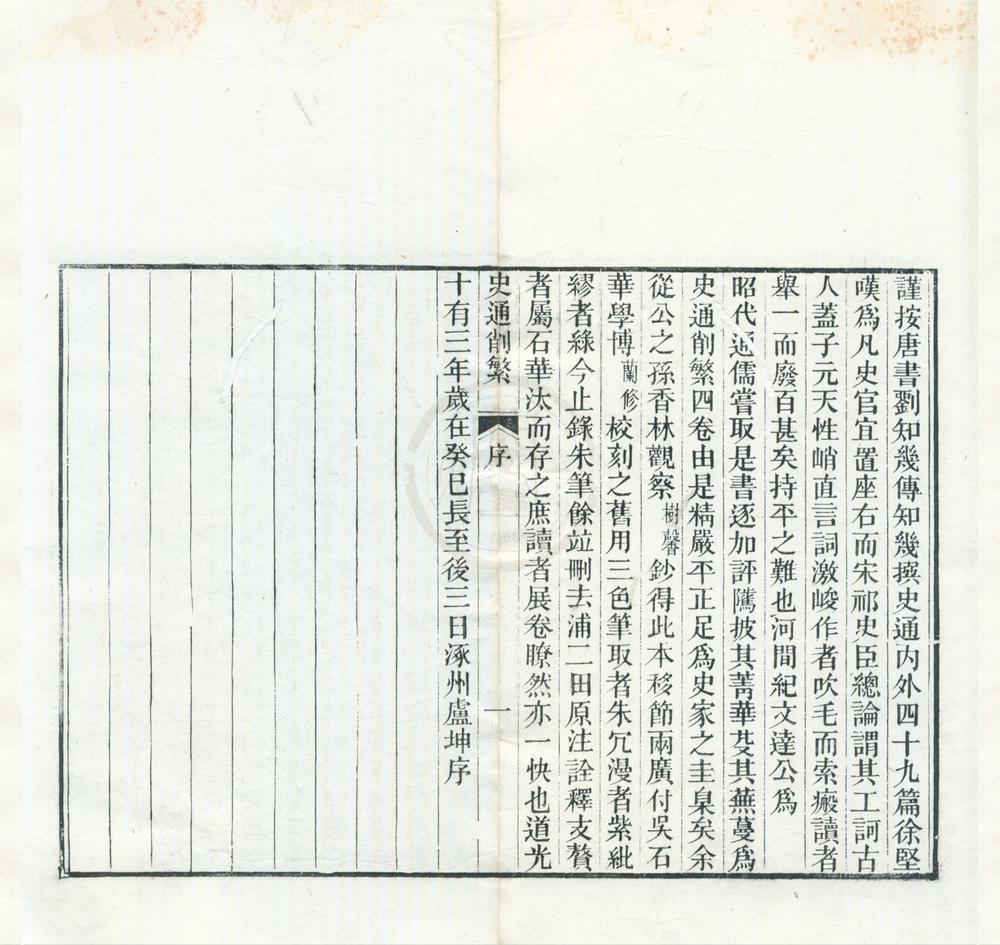 謹按唐書劉知幾傳知幾撰史通内外四十九篇徐堅
嘆爲凡史官宜置座右而宋祁史臣總論謂其工訶古
人蓋子元天性峭直言詞激峻作者吹毛而索瘢讀者
舉一而廢百甚矣持平之難也河間紀文達公爲
昭代通儒嘗取是書逐加評隲披其菁華芟其蕪蔓爲
史通削繁四卷由是精嚴平正足爲史家之圭臬矣余
從公之孫香林觀察樹馨鈔得此本移節兩廣付吳石
華學博蘭修校刻之舊用三色筆取者朱冗漫者紫紕
繆者綠今止錄朱筆餘竝刪去浦二田原注詮釋支贅
者屬石華汰而存之庶讀者展卷瞭然亦一快也道光
史通削繁 序 一
十有三年歲在癸巳長至後三日涿州盧坤序